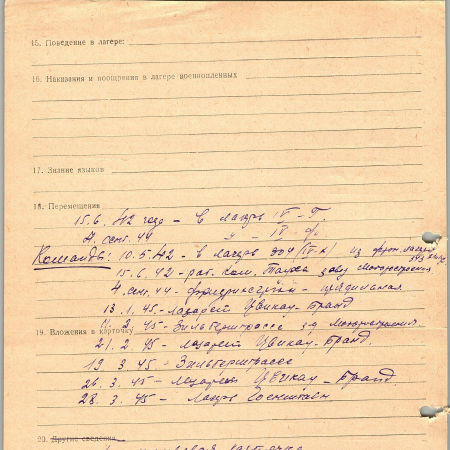 15. Поведение в лагере:
16. Наказания и поощрения в лагере военнопленных
17. Знание языков
18. Перемещения
15.6.42 года – в лагерь IV – Г.
4. сент. 44 – " – IV – ф.
Команды: 10.5.42 – в лагерь 304 (IV-H) из фрон. лагеря
15.6.42 – раб. ком. завод
4. сент. 44 –
13.1.45 – лазарет Цвикау – Бранд
11.2.45 – Зильберштрассе
19. Вложения в карточку
21.2.45 – лазарет Цвикау – Бранд.
19 3 45 – Зильберштрассе
26. 3. 45 – Лазарет Цвикау – Бранд.
28. 3. 45 – Лагерь
20. Другие сведения